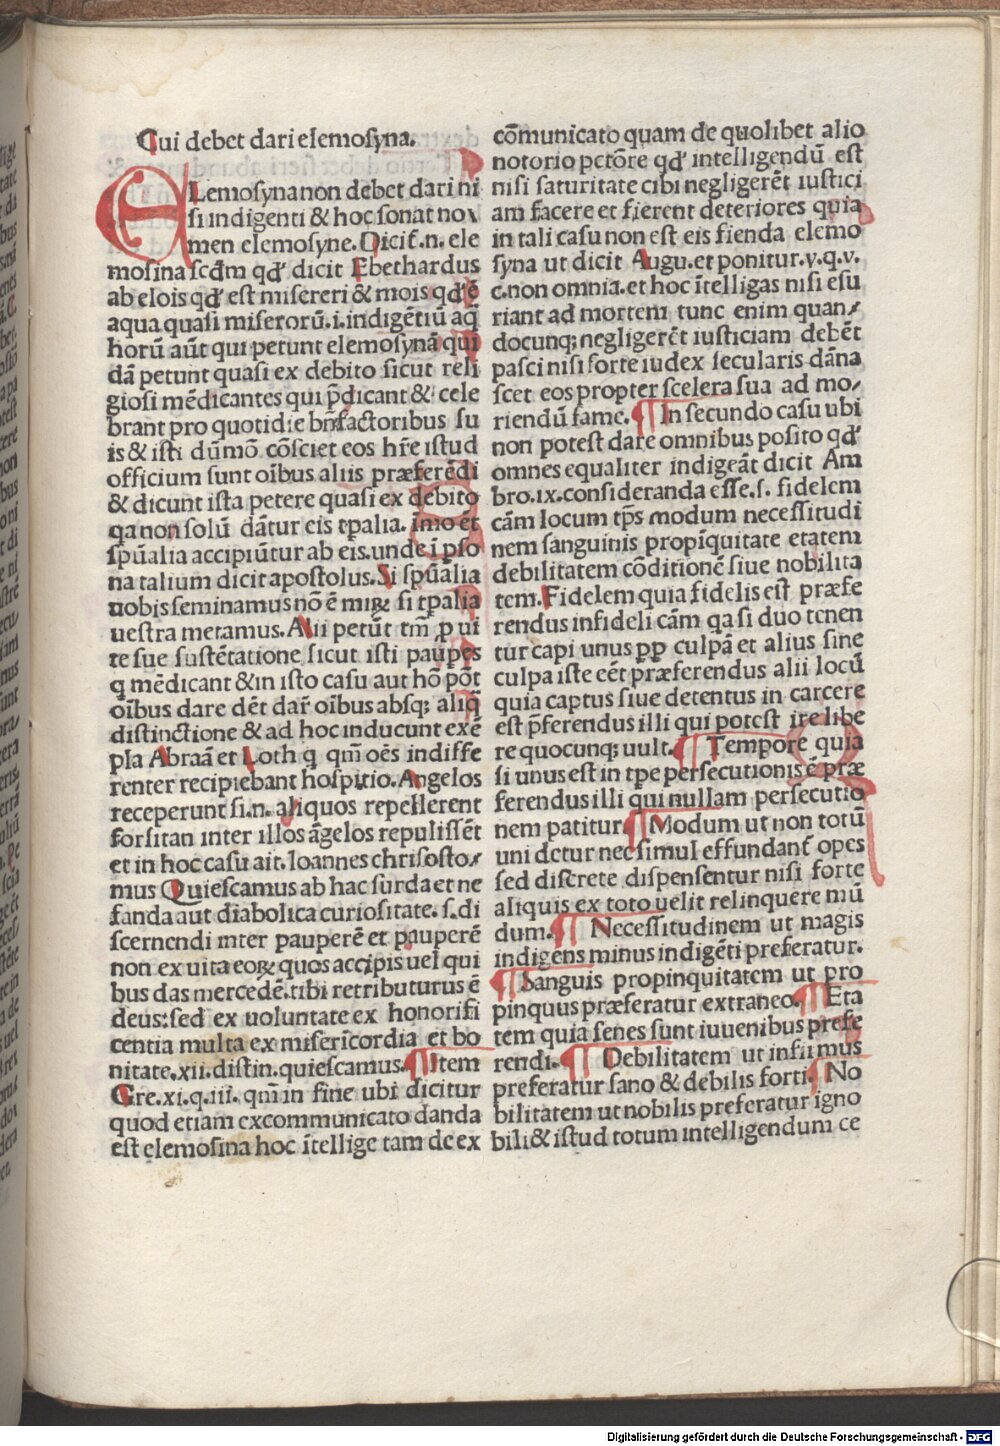 Cui debet dari elemosyna.
ELemosyna non debet dari ni
si indigenti & hoc sonat no⸗
men elemosyne. Dicit̃.n. ele
mosina scđm qđ dicit Ebethardus
ab elois qđ est misereri & mois qđ ē
aqua quasi miserorū.i.indigētiū aq̄
horū aūt qui petunt elemosynā qui
dā petunt quasi ex debito sicut reli
giosi mēdicantes qui p̄dicant & cele
brant pro quotidie bñfactoribus su
is & isti dūmō cōsciet eos hr̄e istud
officium sunt oībus aliis præferēdi
& dicunt ista petere quasi ex debito
qa non solū dātur eis tpalia. īmo et̄
spūalia accipiūtur ab eis.unde ī pso
na talium dicit apostolus. Si spūalia
uobis seminamus nō ē miꝝ si tpalia
uestra metamus. Alii petūt tm̄ ꝓ ui
te sue sustētatione sicut isti paupes
q mēdicant & in isto casu aut hō pōt
oībus dare dēt dar̃ oībus absq; aliq̄
distinctione & ad hoc inducunt exē
pla Abraā et Loth q qm̄ oēs indiffe
renter recipiebant hospitio. Angelos
receperunt si.n. aliquos repellerent
forsitan inter illos āgelos repulissēt
et in hoc casu ait. Ioannes chrisosto⸗
mus Quiescamus ab hac surda et ne
fanda aut diabolica curiositate. s.di
scernendi inter pauperē et pauperē
non ex uita eoꝝ quos accipis uel qui
bus das mercedē.tibi retributurus ē
deus:sed ex uoluntate ex honorifi
centia multa ex misericordia et bo
nitate.xii.distin.quiescamus. ¶ Item
Gre.xi.q.iii. qm̄ in fine ubi dicitur
quod etiam excommunicato danda
est elemosina hoc ītellige tam de ex
cōmunicato quam de quolibet alio
notorio petōre qđ intelligendū est
nisi saturitate cibi negligerēt iustici
am facere et fierent deteriores quia
in tali casu non est eis fienda elemo
syna ut dicit Augu.et ponitur.v.q.v.
c.non omnia.et hoc ītelligas nisi esu
riant ad mortem tunc enim quan⸗
docunq; negligerēt iusticiam debēt
pasci nisi forte iudex secularis dāna
scet eos propter scelera sua ad mo⸗
riendū fame. ¶ In secundo casu ubi
non potest dare omnibus posito qđ
omnes equaliter indigeāt dicit Am
bro.ix.consideranda esse.s. fidelem
cām locum tp̄s modum necessitudi
nem sanguinis propīquitate etatem
debilitatem cōditionē siue nobilita
tem. Fidelem quia fidelis est præfe
rendus infideli cām qa si duo tenen
tur capi unus pp culpā et alius sine
culpa iste eēt præferendus alii locū
quia captus siue detentus in carcere
est p̄ferendus illi qui potest ire libe
re quocunq; uult. ¶ Tempore quia
si unus est in tpe persecutionis ē præ
ferendus illi qui nullam persecutio
nem patitur ¶ Modum ut non totū
uni detur nec simul effundant̃ opes
sed discrete dispensentur nisi forte
aliquis ex toto uelit relinquere mū
dum. ¶ Necessitudinem ut magis
indigens minus indigēti preferatur.
¶ Sanguis propinquitatem ut pro
pinquus præferatur extraneo. ¶ Eta
tem quia senes sunt iuuenibus prefe
rendi. ¶ Debilitatem ut infirmus
preferatur sano & debilis forti. ¶ No
bilitatem ut nobilis preferatur igno
bili & istud totum intelligendum ce
Digitalisierung gefördert durch die Deutsche Forschungsgemeinschaft - DFG